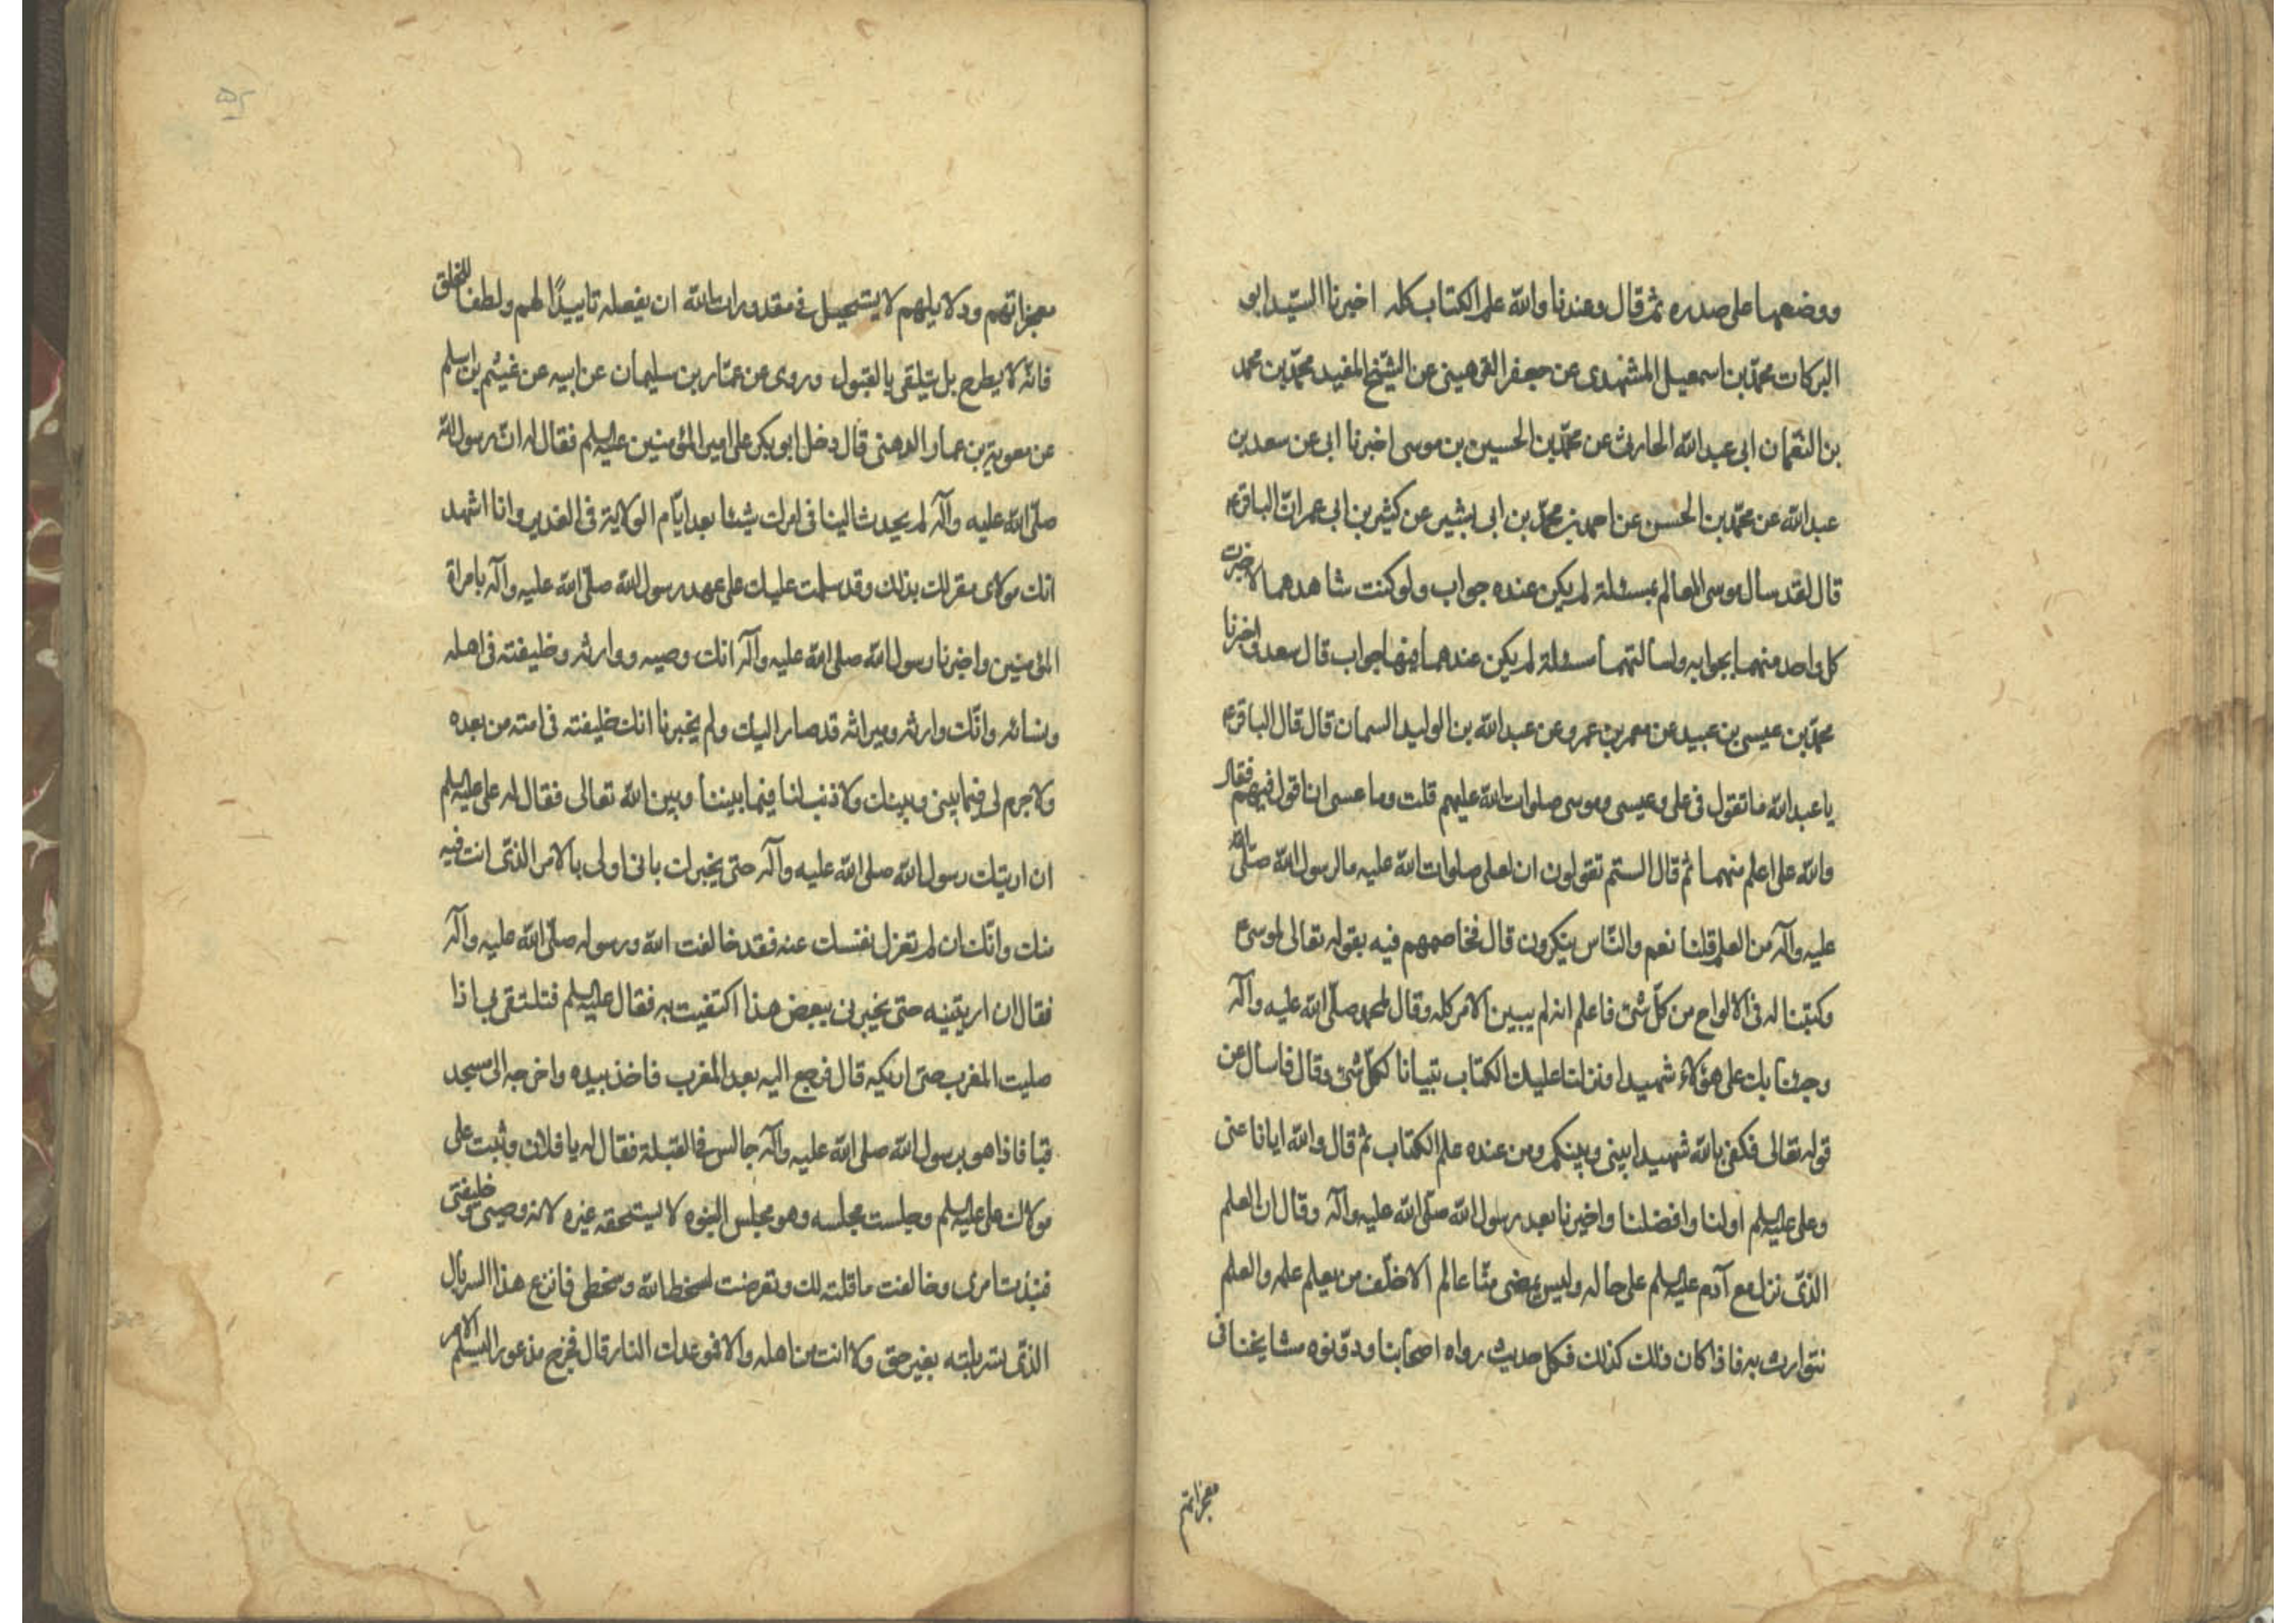 ووضعهما على صدره ثم قال وعندنا والله علم الكتاب كله اخبرنا السيد ابو
البركات محمد بن اسمعيل المشهدى عن جعفر الدورهيتى عن الشيخ المفيد محمد بن محمد
بن النعمان ابى عبد الله الحارثى عن محمد بن الحسين بن موسى اخبرنا ابى عن سعد بن
عبد الله عن محمد بن الحسن عن احمد بن محمد بن ابى بشير عن كثير بن ابى عمران الباقر ع
قال لقد سأل موسى العالم بمسئلة لم يكن عنده جواب ولو كنت شاهدهما لاخبرت
كل واحد منهما بجوابه ولسالتهما مسئلة لم يكن عندهما فيها جواب قال سعد واخبرنا
محمد بن عيسى بن عبيد عن معمر بن عمرو عن عبد الله بن الوليد السمان قال قال الباقر ع
يا عبد الله ما تقول فى على وعيسى وموسى صلوات الله عليهم قلت وما عسى ان اقول فيهم فقال
والله على اعلم منهما ثم قال الستم تقولون ان لعلى صلوات الله عليه ما لرسول الله صلى الله
عليه وآله من العلم قلنا نعم والناس ينكرون قال فخاصمهم فيه بقوله تعالى لموسى ع
وكتبنا له فى الالواح من كل شئ فاعلم انه لم يبين الامر كله وقال لمحمد صلى الله عليه وآله
وجئنا بك على هؤلاء شهيدا ونزلنا عليك الكتاب تبيانا لكل شئ وقال فاسأل عن
قوله تعالى فكفى بالله شهيدا بينى وبينكم ومن عنده علم الكتاب ثم قال والله ايانا عنى
وعلى عليه السلم اولنا وافضلنا واخيرنا بعد رسول الله صلى الله عليه وآله وقال ان العلم
الذى نزل مع آدم عليه السلم على حاله وليس يمضى منا عالم الا خلف من يعلم علمه والعلم
نتوارث به فاذا كان ذلك كذلك فكل حديث رواه اصحابنا ودونوه مشايخنا فى
معجزاتهم
معجزاتهم ودلايلهم لا يستحيل فى مقدورات الله ان يفعله تاييدا لهم ولطفا للخلق
فانه لا يطرح بل يتلقى بالقبول وروى عن عمار بن سليمان عن ابيه عن غيثم بن اسلم
عن معوية بن عمار الدهنى قال دخل ابو بكر على امير المؤمنين عليه السلم فقال له ان رسول الله
صلى الله عليه وآله لم يحدث الينا فى امرك شيئا بعد ايام الولاية فى الغدير وانا اشهد
انك مولاى مقر لك بذلك وقد سلمت عليك على عهد رسول الله صلى الله عليه وآله بامراة
المؤمنين واخبرنا رسول الله صلى الله عليه وآله انك وصيه ووارثه وخليفته فى اهله
ونسائه وانك وارثه وميراثه قد صار اليك ولم يخبرنا انك خليفته فى امته من بعده
ولا جرم لى فيما بينى وبينك ولا ذنب لنا فيما بيننا وبين الله تعالى فقال له على عليه السلم
ان اريتك رسول الله صلى الله عليه وآله حتى يخبرك بانى اولى بالامر الذى انت فيه
منك وانك ان لم تعزل نفسك عنه فقد خالفت الله ورسوله صلى الله عليه وآله
فقال ان اريتنيه حتى يخبرنى ببعض هذا اكتفيت به فقال عليه السلم فتلتقى بى اذا
صليت المغرب حتى اريكيه قال فرجع اليه بعد المغرب فاخذ بيده واخرجه الى مسجد
قبا فاذا هو برسول الله صلى الله عليه وآله جالس فى القبلة فقال له يا فلان وثبت على
مولاك على عليه السلم وجلست مجلسه وهو مجلس النبوه لا يستحقه غيره لانه وصيى وخليفتى
فنبذت امرى وخالفت ما قلته لك وتعرضت لسخط الله وسخطى فانزع هذا السربال
الذى تسربلته بغير حق ولا انت من اهله والا فموعدك النار قال فخرج مذعورا ليسلم الامر